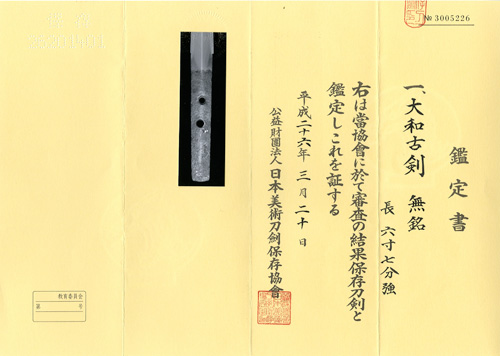 № 3005226
鑑定書
一、大和古剣 無銘
長 六寸七分強
右は當協會に於て審査の結果保存刀剣と
鑑定しこれを証する
平成二十六年 三月二十日
公益財團法人 日本美術刀劍保存協會
教育委員会
第 号